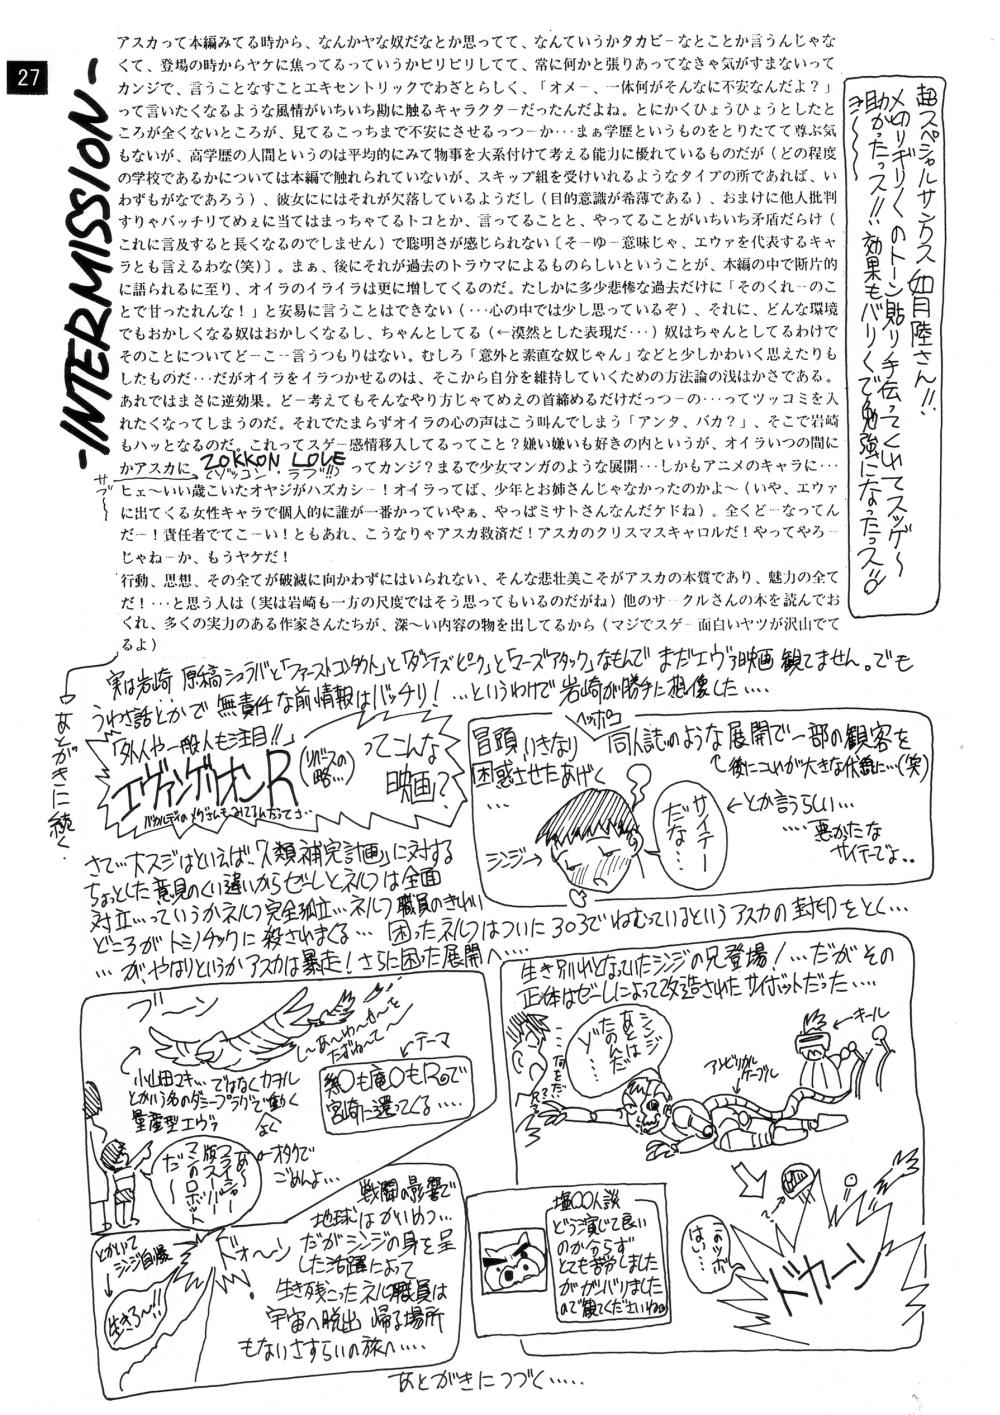 27
-INTERMISSION-
アスカって本編みてる時から、なんかヤな奴だなとか思ってて、なんていうかタカビーなとことか言うんじゃな
くて、登場の時からヤケに焦ってるっていうかピリピリしてて、常に何かと張りあってなきゃ気がすまないって
カンジで、言うことなすことエキセントリックでわざとらしく、「オメー、一体何がそんなに不安なんだよ？」
って言いたくなるような風情がいちいち勘に触るキャラクターだったんだよね。とにかくひょうひょうとしたと
ころが全くないところが、見てるこっちまで不安にさせるっつーか･･･まぁ学歴というものをとりたてて尊ぶ気
もないが、高学歴の人間というのは平均的にみて物事を大系付けて考える能力に優れているものだが（どの程度
の学校であるかについては本編で触れられていないが、スキップ組を受けいれるようなタイプの所であれば、い
わずもがなであろう）、彼女ににはそれが欠落しているようだし（目的意識が希薄である）、おまけに他人批判
すりゃバッチリてめぇに当てはまっちゃてるトコとか、言ってることと、やってることがいちいち矛盾だらけ（
これに言及すると長くなるのでしません）で聡明さが感じられない〔そーゆー意味じゃ、エヴァを代表するキャ
ラとも言えるわな(笑)〕。まぁ、後にそれが過去のトラウマによるものらしいということが、本編の中で断片的
に語られるに至り、オイラのイライラは更に増してくるのだ。たしかに多少悲惨な過去だけに「そのくれーのこ
とで甘ったれんな！」と安易に言うことはできない（･･･心の中では少し思っているぞ）、それに、どんな環境
でもおかしくなる奴はおかしくなるし、ちゃんとしてる（←漠然とした表現だ･･･）奴はちゃんとしてるわけで
そのことについてどーこー言うつもりはない。むしろ「意外と素直な奴じゃん」などと少しかわいく思えたりも
したものだ･･･だがオイラをイラつかせるのは、そこから自分を維持していくための方法論の浅はかさである。
あれではまさに逆効果。どー考えてもそんなやり方じゃてめえの首締めるだけだっつーの･･･ってツッコミを入
れたくなってしまうのだ。それでたまらずオイラの心の声はこう叫んでしまう「アンタ、バカ？」、そこで岩崎
もハッとなるのだ。これってスゲー感情移入してるってこと？嫌い嫌いも好きの内というが、オイラいつの間に
かアスカに ZOKKON LOVE ってカンジ？まるで少女マンガのような展開･･･しかもアニメのキャラに･･･
でゾッコン・ラブ!!
サブ〜
ヒェ〜いい歳こいたオヤジがハズカシー！オイラってば、少年とお姉さんじゃなかったのかよ〜（いや、エヴァ
に出てくる女性キャラで個人的に誰が一番かっていやぁ、やっぱミサトさんなんだケドね）。全くどーなってん
だー！責任者でてこーい！ともあれ、こうなりゃアスカ救済だ！アスカのクリスマスキャロルだ！やってやろー
じゃねーか、もうヤケだ！
行動、思想、その全てが破滅に向かわずにはいられない、そんな悲壮美こそがアスカの本質であり、魅力の全て
だ！･･･と思う人は（実は岩崎も一方の尺度ではそう思ってもいるのだがね）他のサークルさんの本を読んでお
くれ、多くの実力のある作家さんたちが、深〜い内容の物を出してるから（マジでスゲー面白いヤツが沢山でて
るよ）
超スペシャルサンクス 如月陸さん!!
〆切りギリギリのトーン貼り手伝ってくれてスッゲ〜
助かったっス!!効果もバリバリで勉強になったっス
き〜〜
→あとがきに続く
実は岩崎 原稿シュラバと「ファーストコンタクト」と「ダンテズピーク」と「マーズアタック」なもんで まだエヴァ映画 観てません。でも
うわさ話とかで 無責任な前情報はバッチリ！…というわけで 岩崎が勝手に想像した….
「外人や一般人も注目!!」
エヴァンゲリオンR
(リバースの略…)
ってこんな映画？
冒頭、いきなり ヘッポコ 同人誌のような展開で一部の観客を
困惑させたあげく…
後にこれが大きな伏線に…(笑)
シンジ→
サイテーだな…
←とか言うらしい…
…悪かったな
サイテーでよ..
さて…大スジはといえば、「人類補完計画」に対する
ちょっとした意見のくい違いからゼーレとネルフは全面
対立…っていうかネルフ完全孤立…ネルフ職員のきわい
どころがトミノチックに殺されまくる… 困ったネルフはついに303でねむっているというアスカの封印をとく…
…が、やはりというかアスカは暴走！さらに困った展開へ….
ブーン
〜あ〜ゆ〜せ〜と
たずね〜て〜
小山田マキ…ではなくカヲル
とかいう名のダミープラグで動く
量産型エヴァ
←テーマ
糸○も庵○もRで
宮崎に還ってくる….
あ〜フライシャー版スーパーマンのロボットだ〜
←オタクで
ごめんよ…
生き別れとなっていたシンジの兄登場！…だがその
正体はゼーレによって改造されたサイボットだった….
シンジあとはたのんだゾ…
何をだ？
アンビリカルケーブル
←キール
このツボはい…
ドカーン
塩○○人談
どう演じて良い
のか分らず
とても苦労しました
がガンバリました
ので観てくださいね
とかいて
シンジ自爆
生きろ〜!!
ドォ〜ン
戦闘の影響で
地球はかいめつ…
だがシンジの身を呈
した活躍によって
生き残ったネルフ職員は
宇宙へ脱出 帰る場所
もないさすらいの旅へ….
あとがきにつづく…..